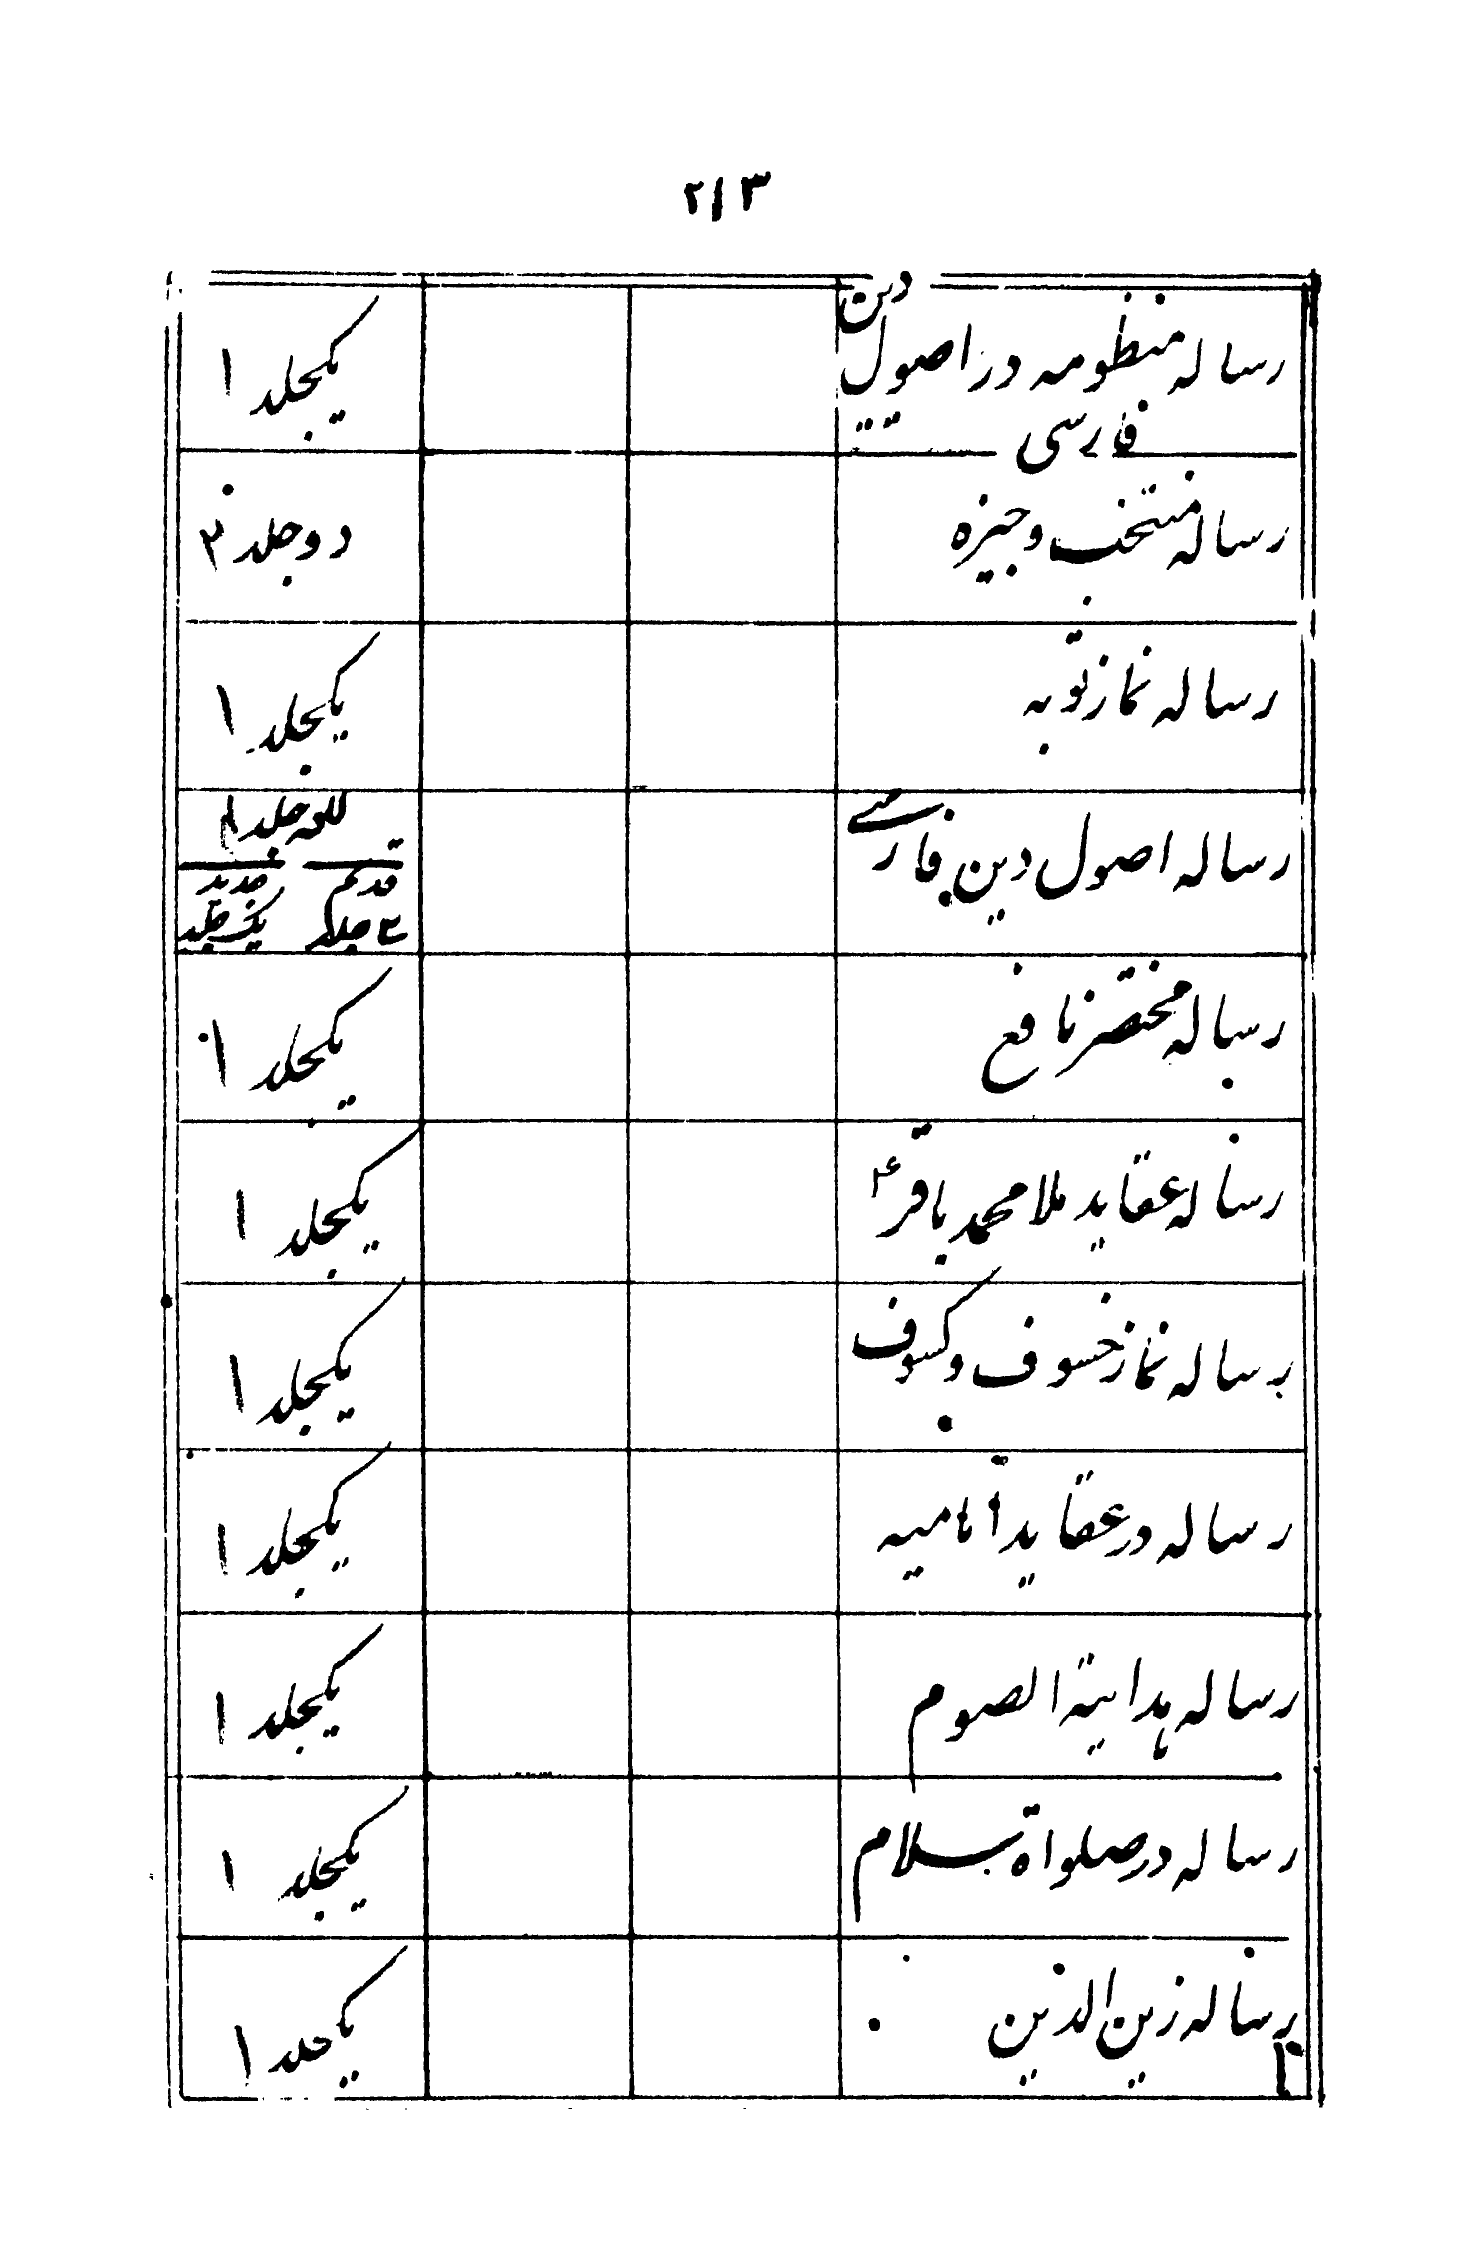 ۲۱۳
رسالہ منظومہ در اصول دین فارسی یکجلد ۱
رسالہ منتخب وجیزہ دو جلد ۲
رسالہ نماز توبہ یکجلد ۱
رسالہ اصول دین فارسی جلد
قدیم جدید
جلد یک جلد
رسالہ مختصر نافع یکجلد ۱
رسالہ عقاید ملا محمد باقر یکجلد ۱
رسالہ نماز خسوف و کسوف یکجلد ۱
رسالہ در عقاید امامیہ یکجلد ۱
رسالہ ہدایتہ الصوم یکجلد ۱
رسالہ در صلواۃ سلام یکجلد ۱
رسالہ زین الدین یکجلد ۱